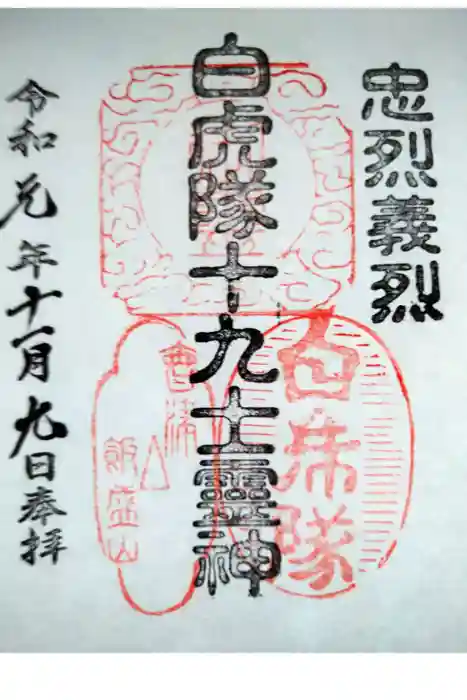 忠烈義烈
白虎隊十九士靈神
白虎隊
會津
飯盛山
令和元年十一月九日奉拝